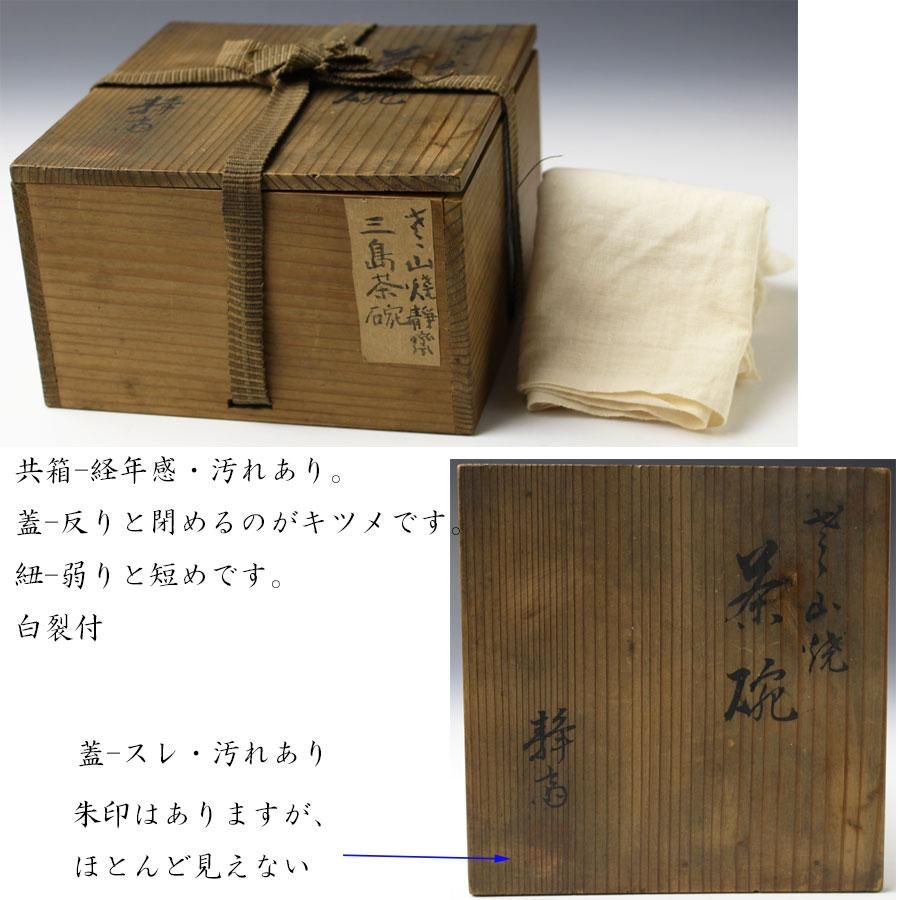 茶碗
三島茶碗
共箱-経年感・汚れあり。
蓋-反りと閉めるのがキツメです。
紐-弱りと短めです。
白裂付
蓋-スレ・汚れあり
朱印はありますが、
ほとんど見えない
山焼
茶碗